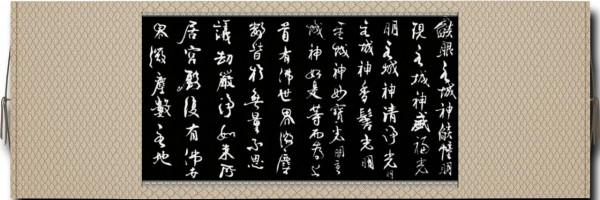 焰眼主城神焰幢明
現主城神盛福光
明主城神清淨光明
主城神香髻光明
主城神妙寶光明主
城神如是等而為上
首有佛世界微塵
數皆於無量不思
議劫嚴淨如來所
居宮殿復有佛世
界微塵數主地